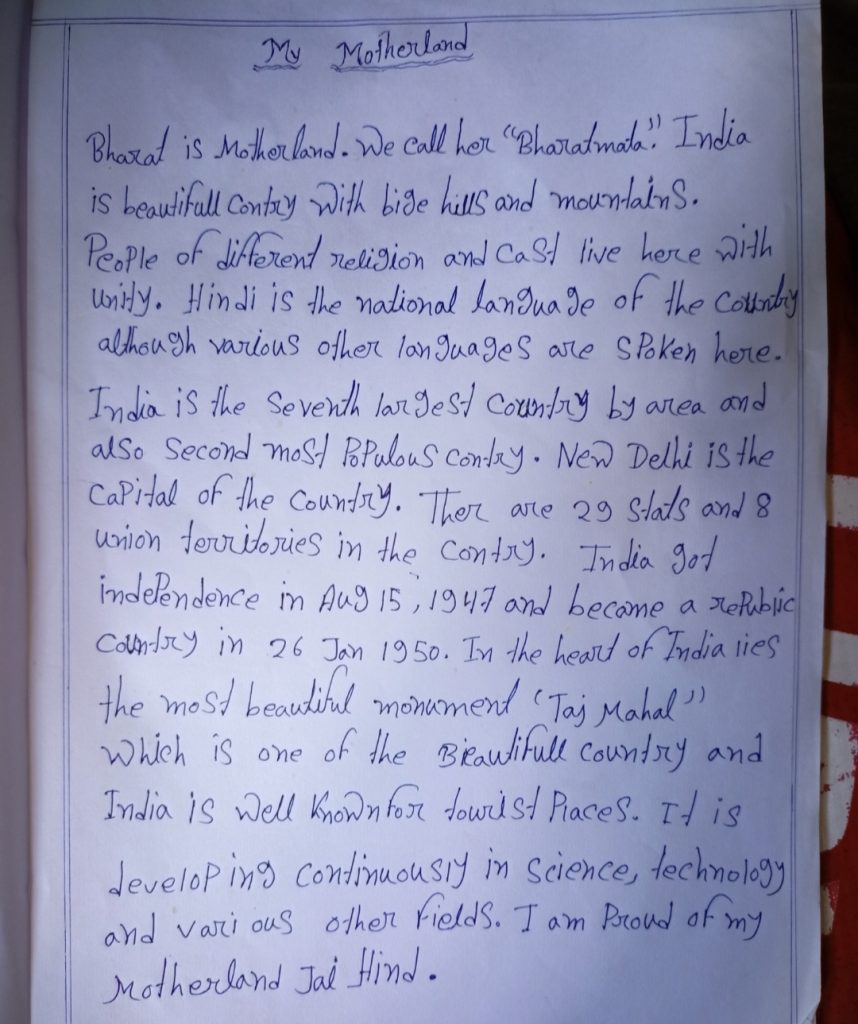 My Motherland
Bharat is Motherland. We call her "Bharatmata". India
is beautifull Contry With bige hills and mountains.
People of different religion and Cast live here With
unity. Hindi is the national language of the Country
although various other languages are spoken here.
India is the Seventh largest Country by area and
also Second most Populous contry. New Delhi is the
Capital of the Country. Ther are 29 Stats and 8
union territories in the Contry. India got
independence in Aug 15, 1947 and become a republic
Country in 26 Jan 1950. In the heart of India lies
the most beautiful monument 'Taj Mahal"
Which is one of the Beautifull Country and
India is Well Known for tourist Places. It is
developing Continuously in Science, technology
and various other fields. I am Proud of my
Motherland Jai Hind.